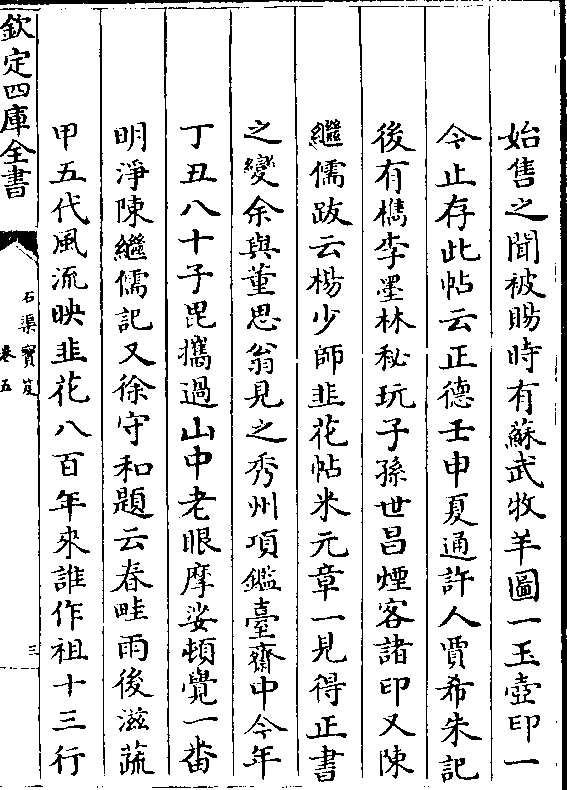 始售之聞被賜時有蘇武牧羊圖一玉壺印一
今止存此帖云正德壬申夏通許人賈希朱記
後有檇李墨林秘玩子孫世昌煙客諸印又陳
繼儒跋云楊少師韭花帖米元章一見得正書
之變余與董思翁見之秀州項鑑臺齋中今年
丁丑八十子毘攜過山中老眼摩娑頓覺一畨
明淨陳繼儒記又徐守和題云春畦雨後滋蔬
甲五代風流映韭花八百年來誰作祖十三行
欽定四庫全書
石渠寶笈
卷五
三